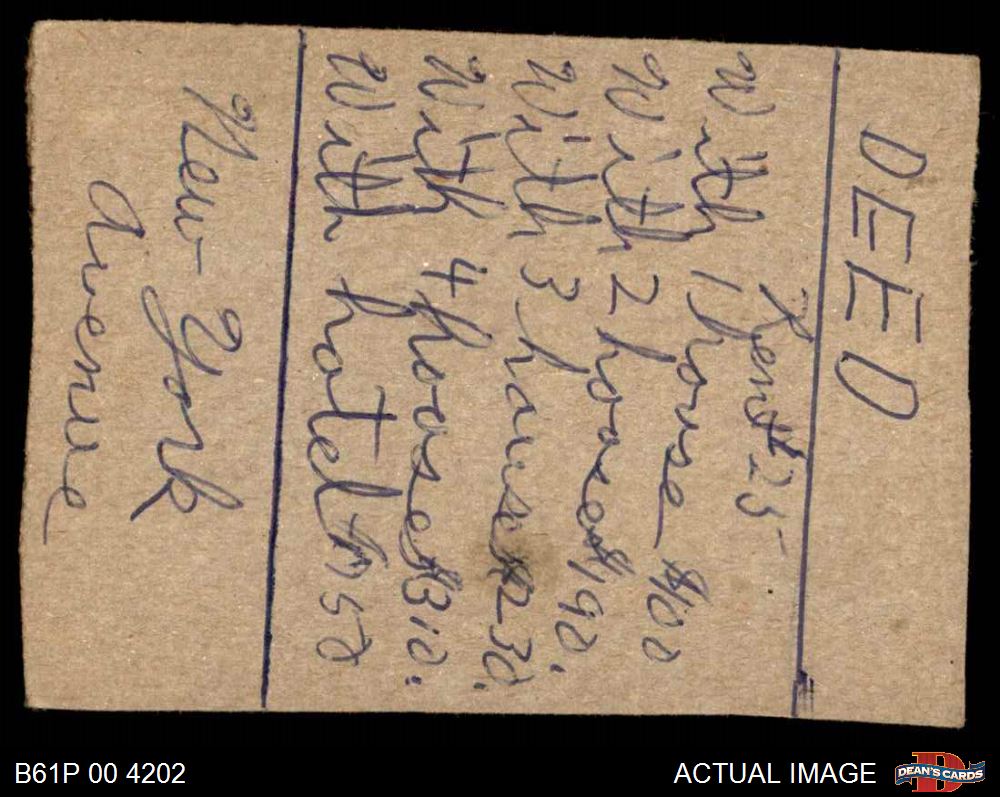 DEED
Rent $25
With 1 house $100
With 2 houses $190.
With 3 houses $230.
With 4 houses $310.
With hotel $750
New York
Avenue
B61P 00 4202
ACTUAL IMAGE
DEAN'S CARDS